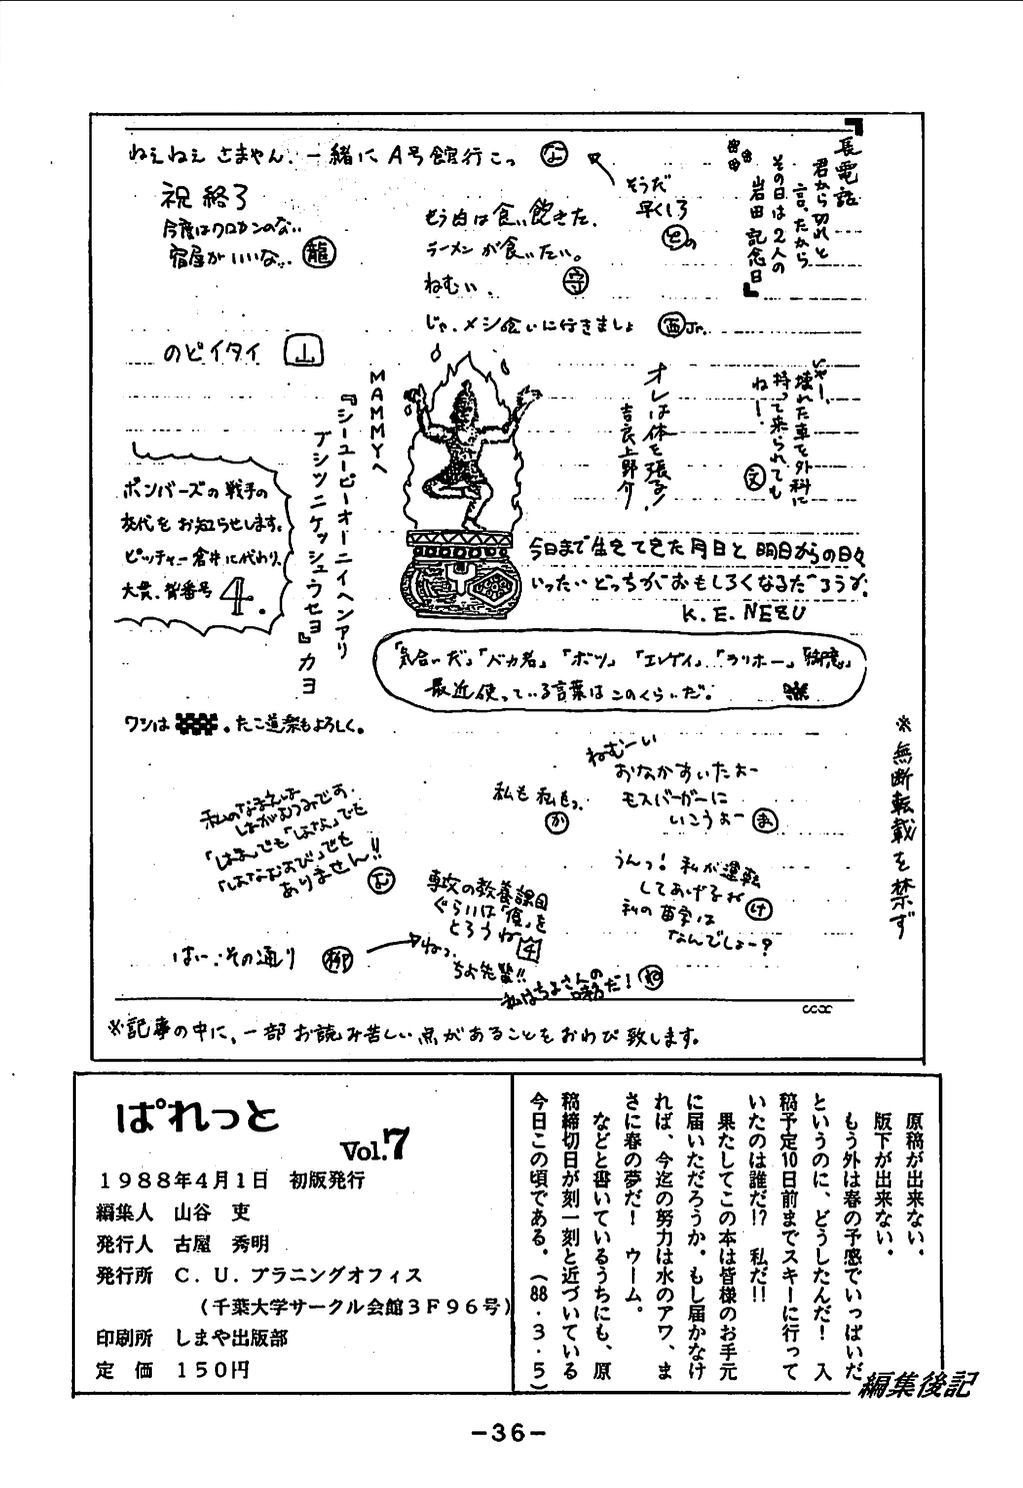 ねぇねぇ さまやん、一緒に A号館行こっ な
そうだ
早くしろ
との
『長電話
君から切れと
言ったから
その日は2人の
岩田記念日』
祝 終了
今度はクロカンのない
宿屋がいいな… 龍
もう肉は食い飽きた。
ラーメンが食いたい。
ねむい。 守
じゃ、メシ食いに行きましょ 西Jr.
のどイタイ 山
MAMMYへ
『シーユーピーオーニイヘンアリ
ブシツニケッシュウセヨ』カヨ
オレは体を張るぞ!
吉良上野介
いやー、
壊れた車を外科に
持って来られても
ねー! 文
ボンバーズの戦手の
交代をお知らせします。
ピッチャー倉井に代わり、
大貫、背番号 4.
今日まで生きてきた月日と 明日からの日々
いったいどっちがおもしろくなるだろうか。
K.E.NEZU
「気合いだ」「バカ君」「ボツ」「エレゲイ」「ラリホー」
最近使っている言葉はこのくらいだ。
ワシは
たこ道楽もよろしく。
※無断転載を禁ず
ねむーい
おなかすいたよー
モスバーガーに
いこうよー ま
私も 私もっ か
私のなまえは
はがむつみです。
「はま」でも「はな」でも
「はなむすび」でも
ありません!! む
うんっ! 私が運転
してあげるね
私の苗字は
なんでしょー? け
専攻の教養課目
ぐらいは「優」を
とろうね 4
はい…その通り 柳
ねっ、
ちよ先輩!!
私はちよさんの
味方だ! ね
※記事の中に、一部お読み苦しい点があることをおわび致します。
ぱれっと
Vol.7
1988年4月1日 初版発行
編集人 山谷 吏
発行人 古屋 秀明
発行所 C.U.プラニングオフィス
(千葉大学サークル会館3F96号)
印刷所 しまや出版部
定 価 150円
原稿が出来ない。
版下が出来ない。
もう外は春の予感でいっぱいだ
というのに、どうしたんだ! 入
稿予定10日前までスキーに行って
いたのは誰だ!? 私だ!!
果たしてこの本は皆様のお手元
に届いただろうか。もし届かなけ
れば、今迄の努力は水のアワ、ま
さに春の夢だ! ウーム。
などと書いているうちにも、原
稿締切日が刻一刻と近づいている
今日この頃である。(88・3・5)
編集後記
-36-